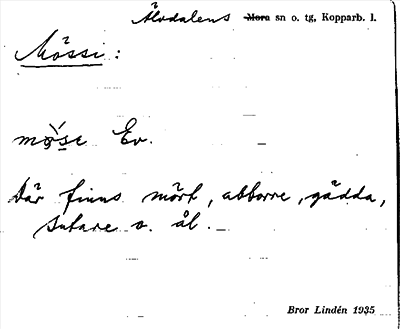 Älvdalens Mora sn o. tg, Kopparb. l.
Mössi :
Ev.
Där finns mört, abborre, gädda,
sutare o. ål.
Bror Lindén 1935